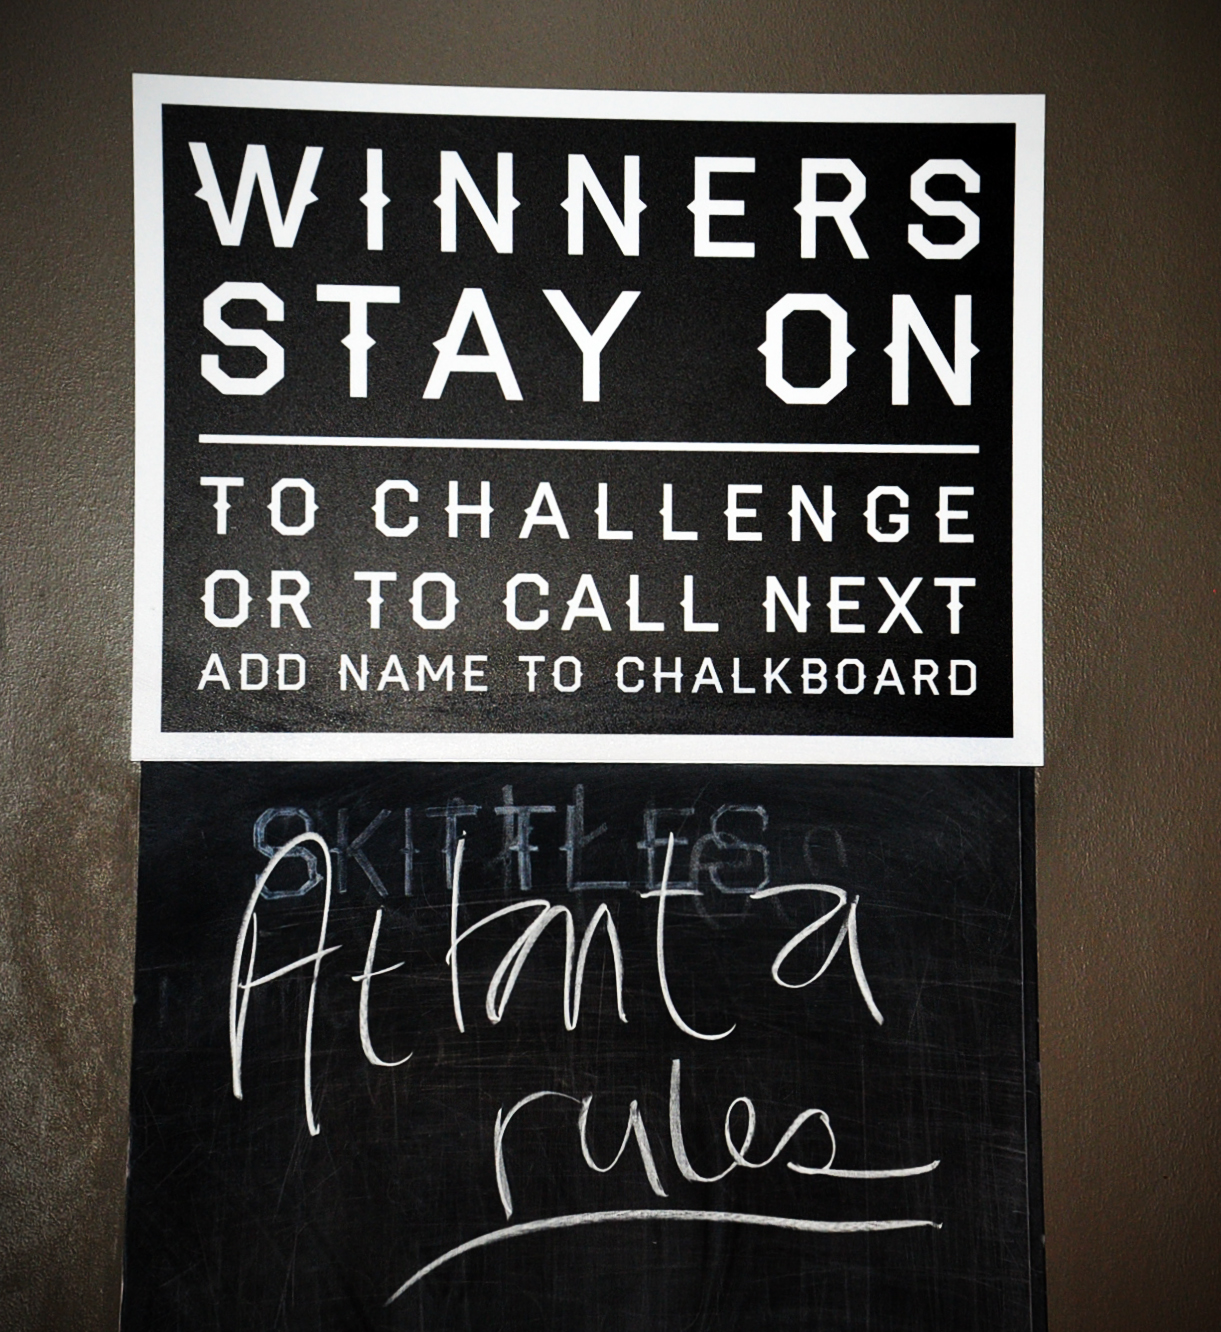 WINNERS
STAY ON
TO CHALLENGE
OR TO CALL NEXT
ADD NAME TO CHALKBOARD
SKITTLES
Atlanta
rules